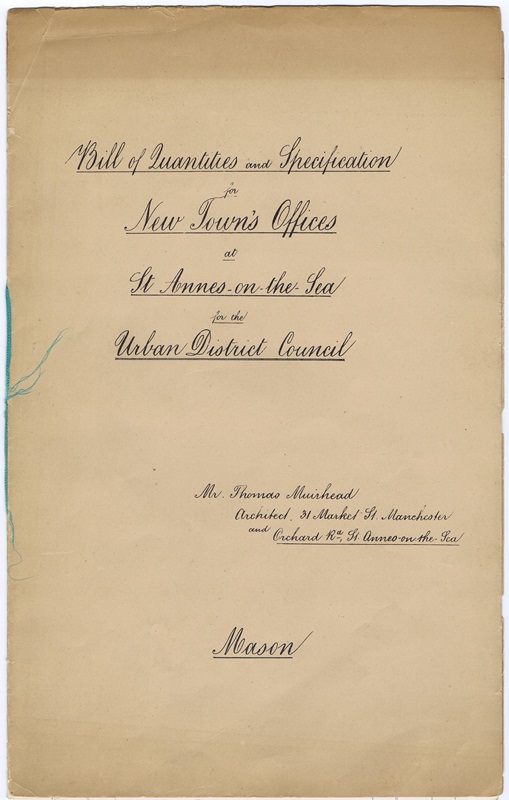 Bill of Quantities and Specification
for
New Town's Offices
at
St Annes-on-the-Sea
for the
Urban District Council
Mr. Thomas Muirhead
Architect, 31 Market St. Manchester
and Orchard Rd, St Annes-on-the-Sea
Mason